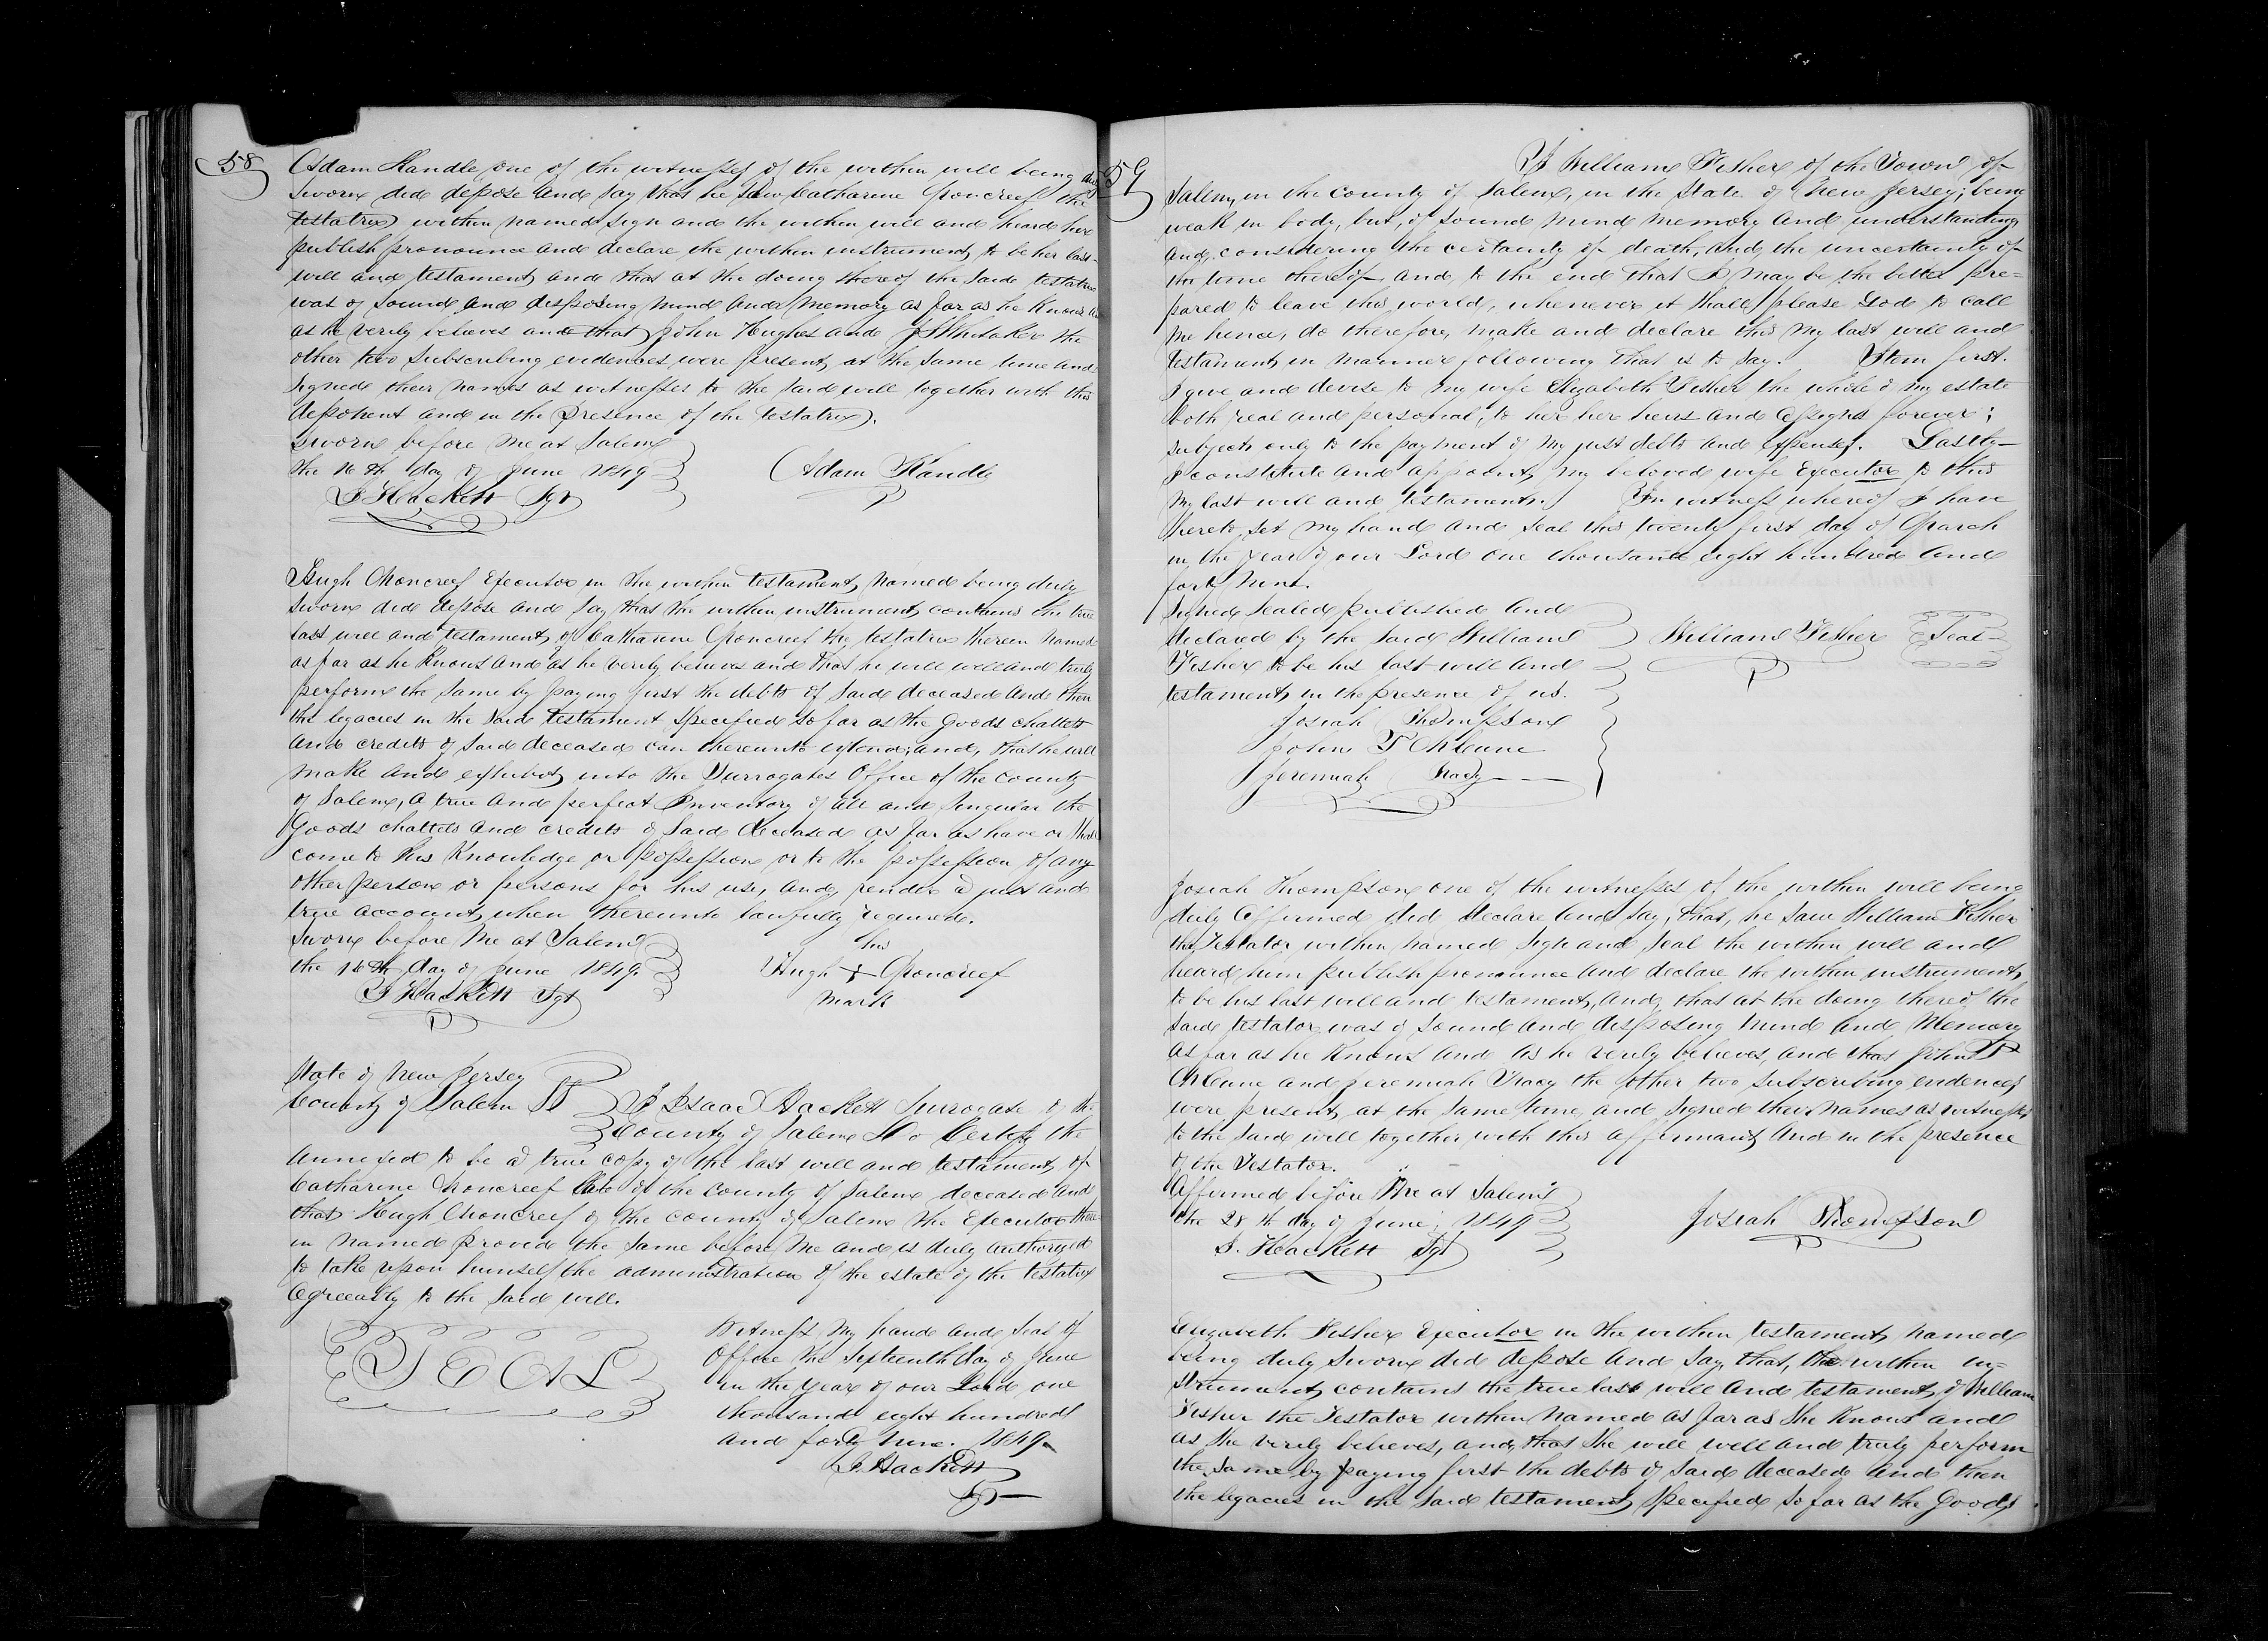 58
Adam Kandle one of the witnesses of the within will being duly
sworn did depose and say that he saw Catharine Moncreef the
testatrix within named sign and the within will and heard her
publish pronounce and declare the within instrument to be her last
will and testament and that at the doing thereof the said testatrix
was of sound and disposing mind and memory as far as he knows and
as he verily believes and that John Hughes and J Whitaker the
other two subscribing evidences were present at the same time and
signed their names as witnesses to the said will together with this
deponent and in the presence of the testatrix.
Sworn before me at Salem
the 16th day of June 1849
I Hackett Sgt
Adam Kandle
Hugh Moncreef Executor in the within testament named being duly
sworn did depose and say that the within instrument contains the true
last will and testament of Catharine Moncreef the testatrix therein named
as far as he knows and as he verily believes and that he will well and truly
perform the same by paying first the debts of said deceased and then
the legacies in the said testament specified so far as the goods chattels
and credits of said deceased can thereunto extend; and, that he will
make and exhibit into the Surrogates Office of the county
of Salem, a true and perfect Inventory of all and singular the
Goods chattels and credits of said deceased as far as have or shall
come to his knowledge or possession or to the possession of any
other person or persons for his use, and render a just and
true account when thereunto lawfully required.
Sworn before me at Salem
the 16th day of June 1849.
I Hackett Sgt
his
Hugh + Moncreef
mark
State of New Jersey
County of Salem SS
I Isaac Hackett Surrogate of the
County of Salem Do Certify the
annexed to be a true copy of the last will and testament of
Catharine Moncreef late of the county of Salem deceased and
that Hugh Moncreef of the county of Salem the Executor there-
in named proved the same before me and is duly authorized
to take upon himself the administration of the estate of the testatrix
agreeably to the said will.
SEAL
Witness my hand and seal of
Office the sixteenth day of June
in the year of our Lord one
thousand eight hundred
and forty nine. 1849
I. Hackett
Sgt
59
I William Fisher of the Town of
Salem, in the county of Salem, in the State of New Jersey; being
weak in body, but, of sound mind memory and understanding
and, considering the certainty of death, and the uncertainty of
the time thereof and to the end that I may be the better pre=
pared to leave this world, whenever it shall please God to call
me hence, do therefore, make and declare this my last will and
testament, in manner following that is to say. Item first.
I give and devise to my wife Elizabeth Fisher the whole of my estate
both real and personal; to her her heirs and assigns forever;
subject only to the payment of my just debts and expenses. Lastly—
I constitute and appoint, my beloved wife Executor to this
my last will and testament. In witness whereof I have
hereto, set my hand and seal this twenty first day of March
in the year of our Lord one thousand eight hundred and
forty nine.
Signed sealed published and
declared by the said William
Fisher to be his last will and
testament in the presence of us.
William Fisher Seal
Josiah Thompson
John P McCune
Jeremiah Tracy
Josiah Thompson one of the witnesses of the within will being
duly affirmed did declare and say, that, he saw William Fisher
the Testator within named sign and seal the within will and
heard him publish pronounce and declare the within instrument,
to be his last will and testament, and, that at the doing thereof the
said testator was of sound and disposing mind and memory
as far as he knows and as he verily believes, and that John P
McCune and Jeremiah Tracy the other two subscribing evidences
were present, at the same time, and signed their names as witnesses
to the said will together with this affirmant, and in the presence
of the Testator.
Affirmed before me at Salem
the 28th day of June, 1849
I. Hackett Sgt
Josiah Thompson
Elizabeth Fisher Executor in the within testament, named
being duly sworn did depose and say, that, the within in=
strument, contains the true last will and testament, of William
Fisher the Testator within named as far as she knows and
as she verily believes, and, that she will well and truly perform
the same by paying first the debts of said deceased and then
the legacies in the said testament, specified so far as the Goods